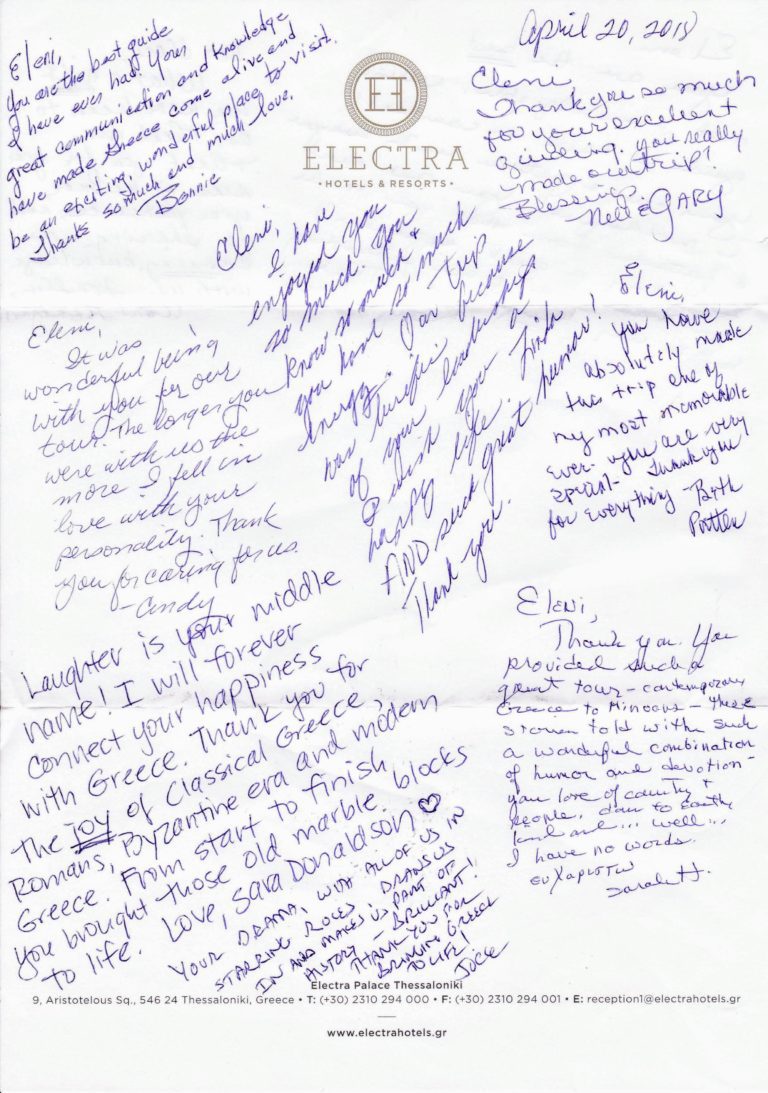 Eleni,
You are the best guide
I have ever had. Your
great communication and knowledge
have made Greece come alive and
be an exciting, wonderful place to visit.
Thanks so much and much love.
Bonnie
ELECTRA
• HOTELS & RESORTS •
April 20, 2018
Eleni
Thank you so much
for your excellent
guiding. you really
made our trip!
Blessings
Nell & GARY
Eleni,
I have
enjoyed you
so much. You
know so much &
you have so much
energy. Our trip
was terrific because
of your leadership.
I wish you a
happy life.
AND such great humor!
Thank you.
Eleni,
It was
wonderful being
with you for our
tour. The longer you
were with us the
more I fell in
love with your
personality. Thank
you for caring for us.
- Cindy
Eleni,
you have
absolutely made
this trip one of
my most memorable
ever. you are very
special- Thank you
for everything - Beth
Laughter is your middle
name! I will forever
connect your happiness
with Greece. Thank you for
the joy of Classical Greece,
Romans, Byzantine era and modern
Greece. From start to finish
you brought those old marble blocks
to life. Love, Sara Donaldson ♡
Eleni,
Thank you. You
provided such a
great tour - contemporary
Greece to Minoans - these
stories told with such
a wonderful combination
of humor and devotion -
you love of country &
people, down to earth,
kind and... well...
I have no words.
ευχαριστω
Sarah H.
YOUR DRAMA, WITH ALL OF US IN
STARRING ROLES DRAWS US
IN AND MAKES US PART OF
HISTORY - BRILLIANT!
THANK YOU FOR
BRINGING GREECE
TO LIFE!
Electra Palace Thessaloniki
9, Aristotelous Sq., 546 24 Thessaloniki, Greece • T: (+30) 2310 294 000 • F: (+30) 2310 294 001 • E: reception1@electrahotels.gr
www.electrahotels.gr